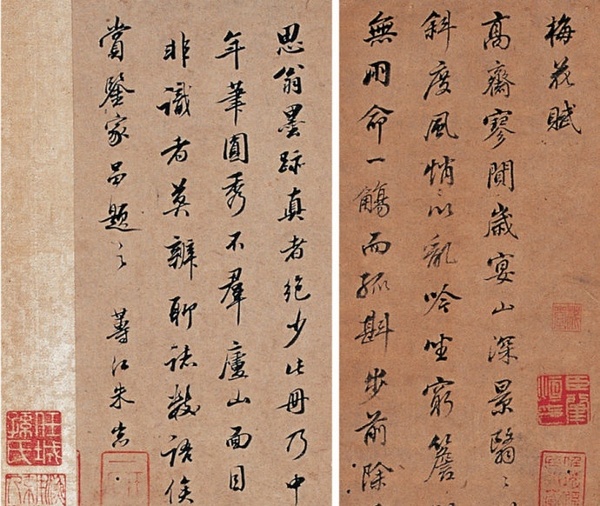 梅花賦
高齋寥閴歲宴山深景翳々
斜度風悄々以亂吟坐窮簷
無朋命一觴而孤斟步前除
思翁墨跡真者絕少此冊乃中
年筆圓秀不羣廬山面目
非識者莫辨聊誌數語俟
賞鑒家品題之 江朱
任城孫氏